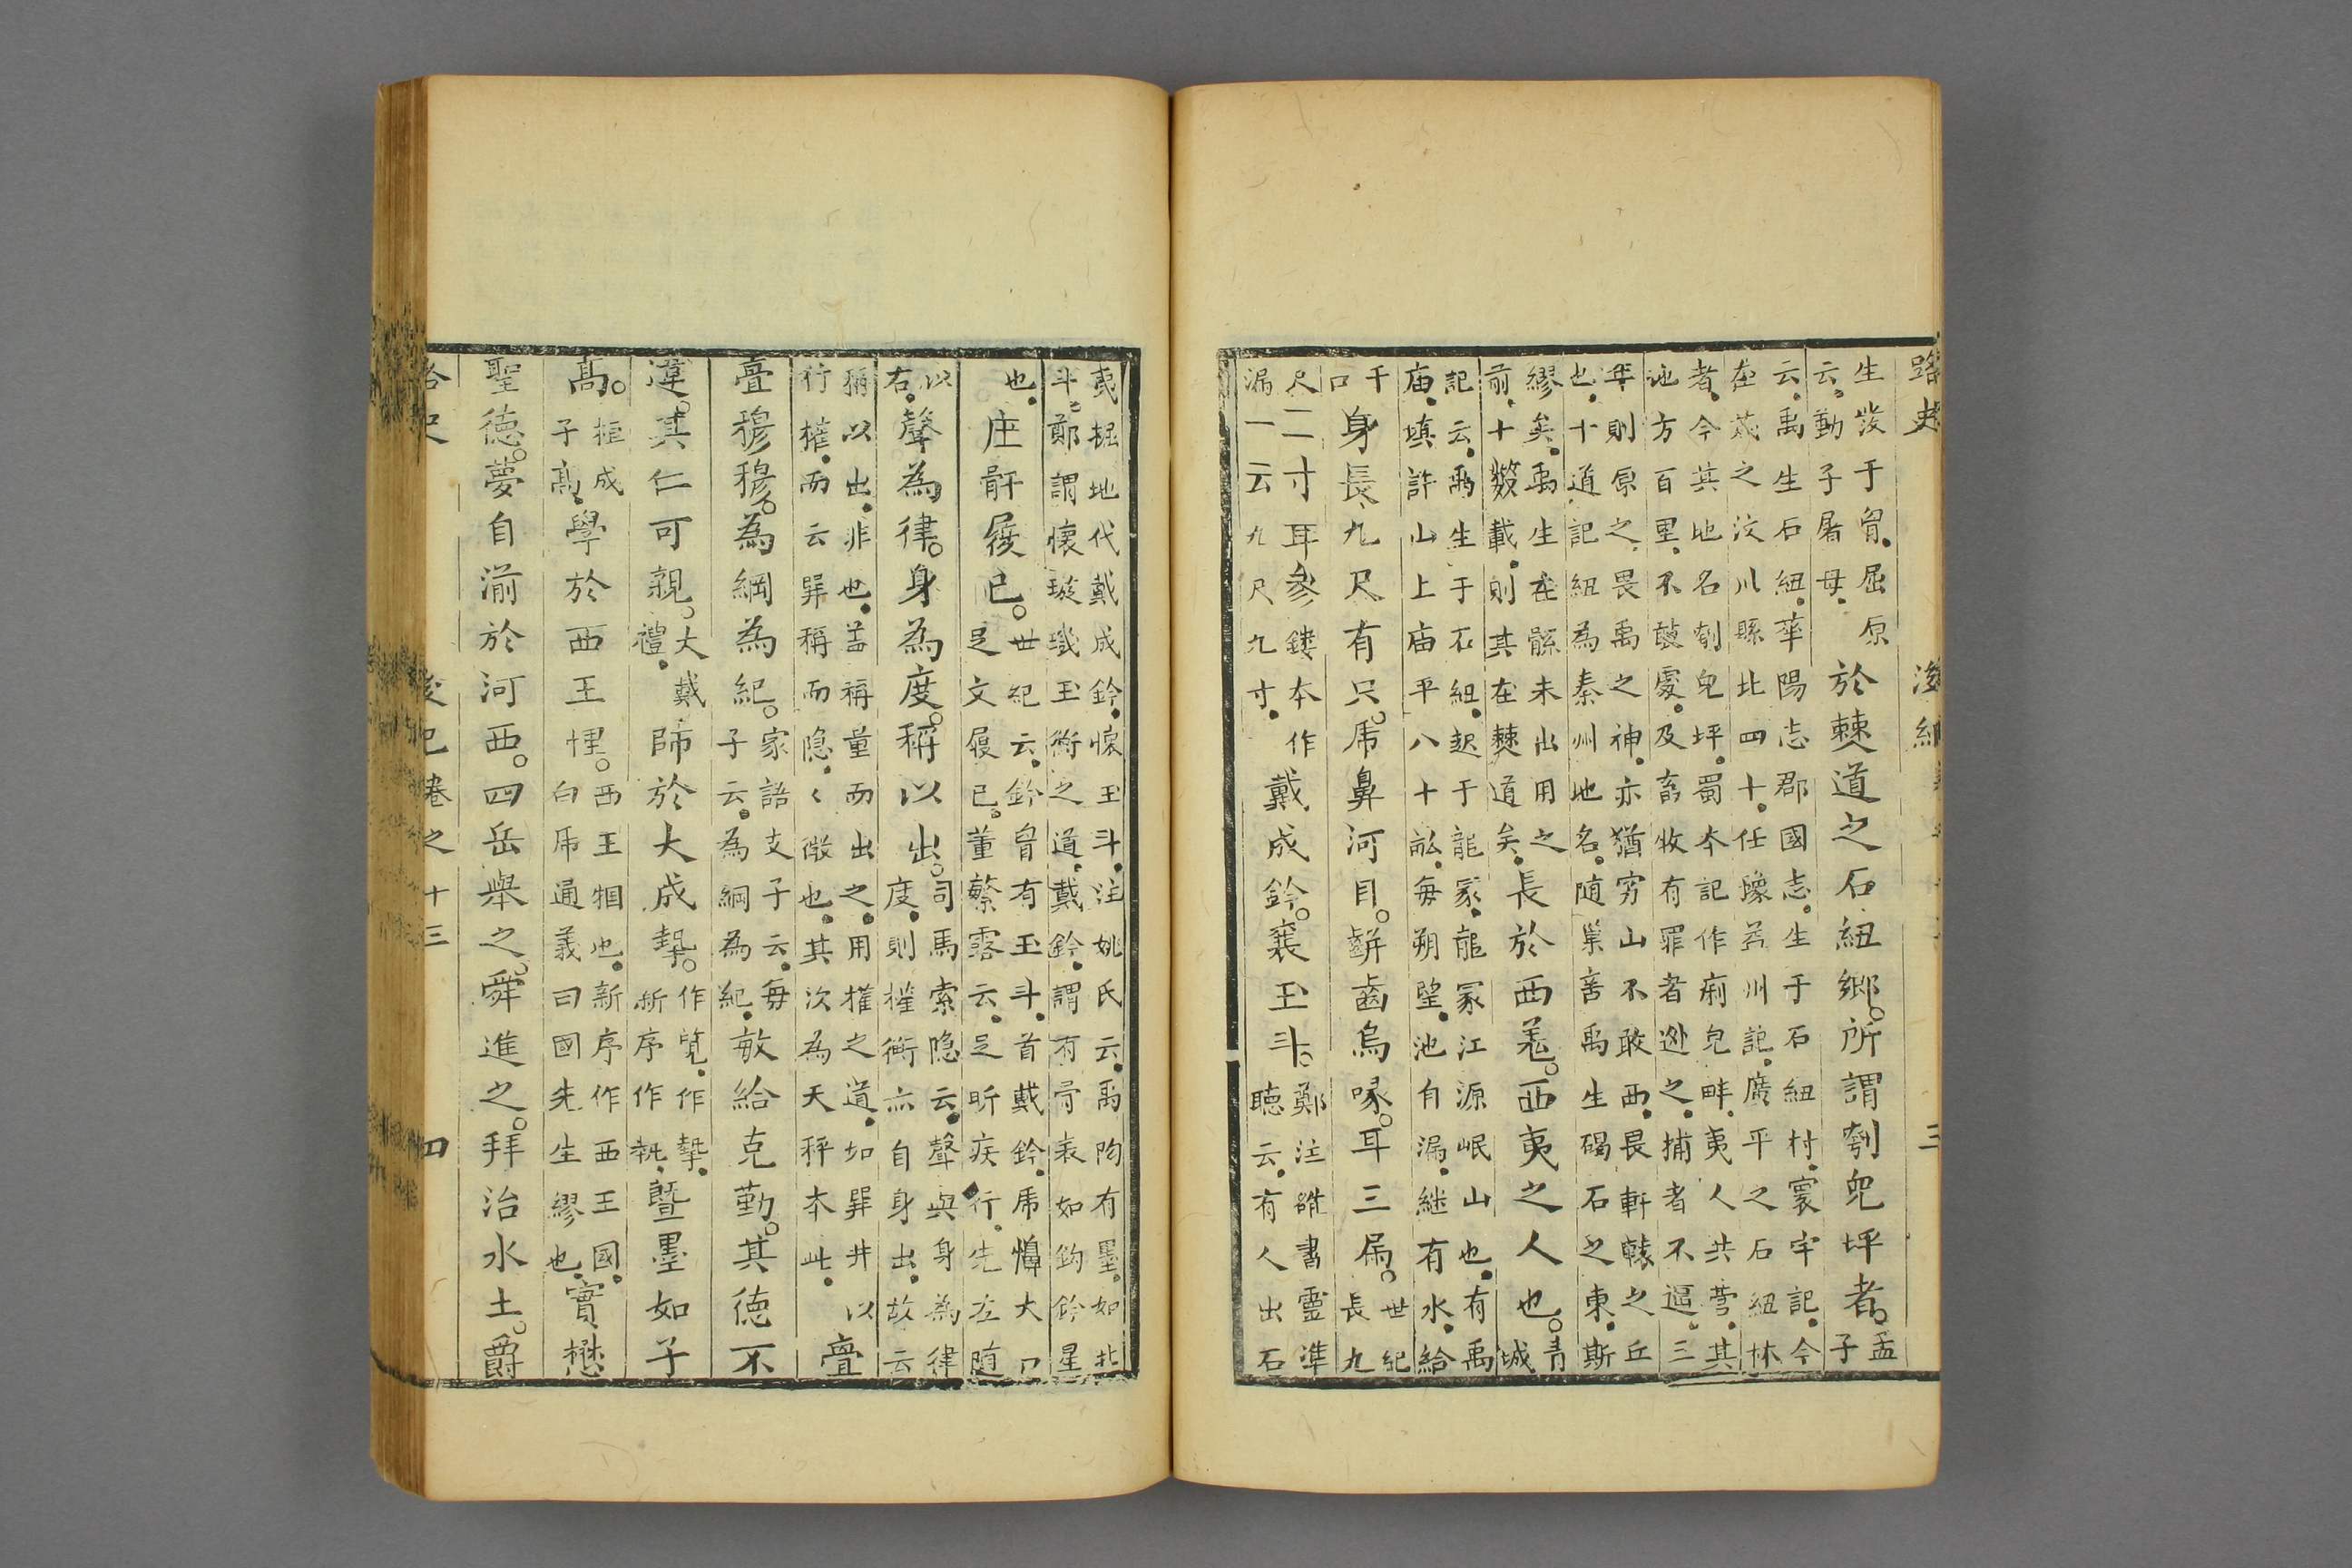 路史 後紀 三
生發于胷屈原
云勤子屠母
於僰道之石紐鄉所謂刳兒坪者
孟
子
云禹生石紐華陽志郡國志生于石紐村寰宇記今
在茂之汶川縣北四十任豫益州記廣平之石紐林
者今其地名刳兒坪蜀本記作痢兒畔夷人共營其
地方百里不敢處及畜牧有罪者逃之捕者不逼三
年則原之畏禹之神亦猶穷山不敢西畏軒轅之丘
也十道記紐為秦州地名随巢言禹生碣石之東斯
繆矣禹生在鯀未出用之
前十數載則其在僰道矣
長於西羌西夷之人也
青
城
記云禹生于石紐起于龍冢龍冢江源岷山也有禹
庙填許山上庙平八十畝每朔望池自漏継有水給
千
口
身長九尺有只虎鼻河目齒烏喙耳三漏
世紀
長九
尺二寸耳參鏤本作
漏一云九尺九寸
戴成鈐襄玉斗
鄭注雒書靈準
聴云有人出石
夷掘地代戴成鈐懷玉斗注姚氏云禹胷有墨如北
斗鄭謂懷璇璣玉衡之道戴鈐謂有骨表如鈎鈐星
也
庄骭屐已
世紀云鈐胷有玉斗首戴鈐虎大口
足文履已董蘩露云足昕疾行先左随
以
右
聲為律身為度稱以出
司馬索隐云聲與身為律
度則權衡亦自身出故云
稱以出非也葢稱量而出之用權之道如巽井以
行權而云巽稱而隐〻微也其次為天秤本此
亹
亹穆穆為綱為紀
家語支子云每
子云為綱為紀
敏給克勤其德不
違其仁可親
大戴
禮
師於大成摯
作覽作摯
新序作執
暨墨如子
高
柜成
子高
學於西王悝
西王悃也新序作西王國
白虎通義曰國先生繆也
實懋
聖德夢自湔於河西四岳舉之舜進之拜治水土爵
路史 後紀卷之十三 四